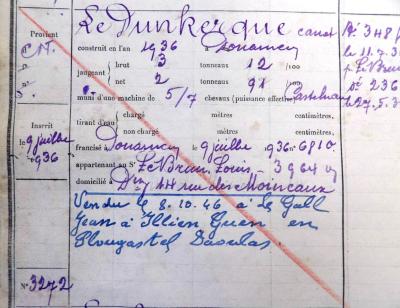 Le Dunkerque canot
Provient
C.N.
construit en l'an 1936 à Douarnenez
jaugeant
brut 3 tonneaux 12 /100
net 2 tonneaux 91 /100
muni d'une machine de 5/7 chevaux (puissance effective)
tirant d'eau
chargé mètres centimètres.
non chargé mètres centimètres.
Inscrit
le 9 juillet
1936
francisé à Douarnenez le 9 juillet 1936 n° 6810
appartenant au Sr Le Brun Louis 3964
domicilié à Dnz 44 rue des Moineaux
Vendu le 8.10.46 à Le Gall
Jean à Illien Guen en
Plougastel Daoulas.
N° 3272
N° 348
le 11.7.3
Le Brun
n° 236
le 27.5.3